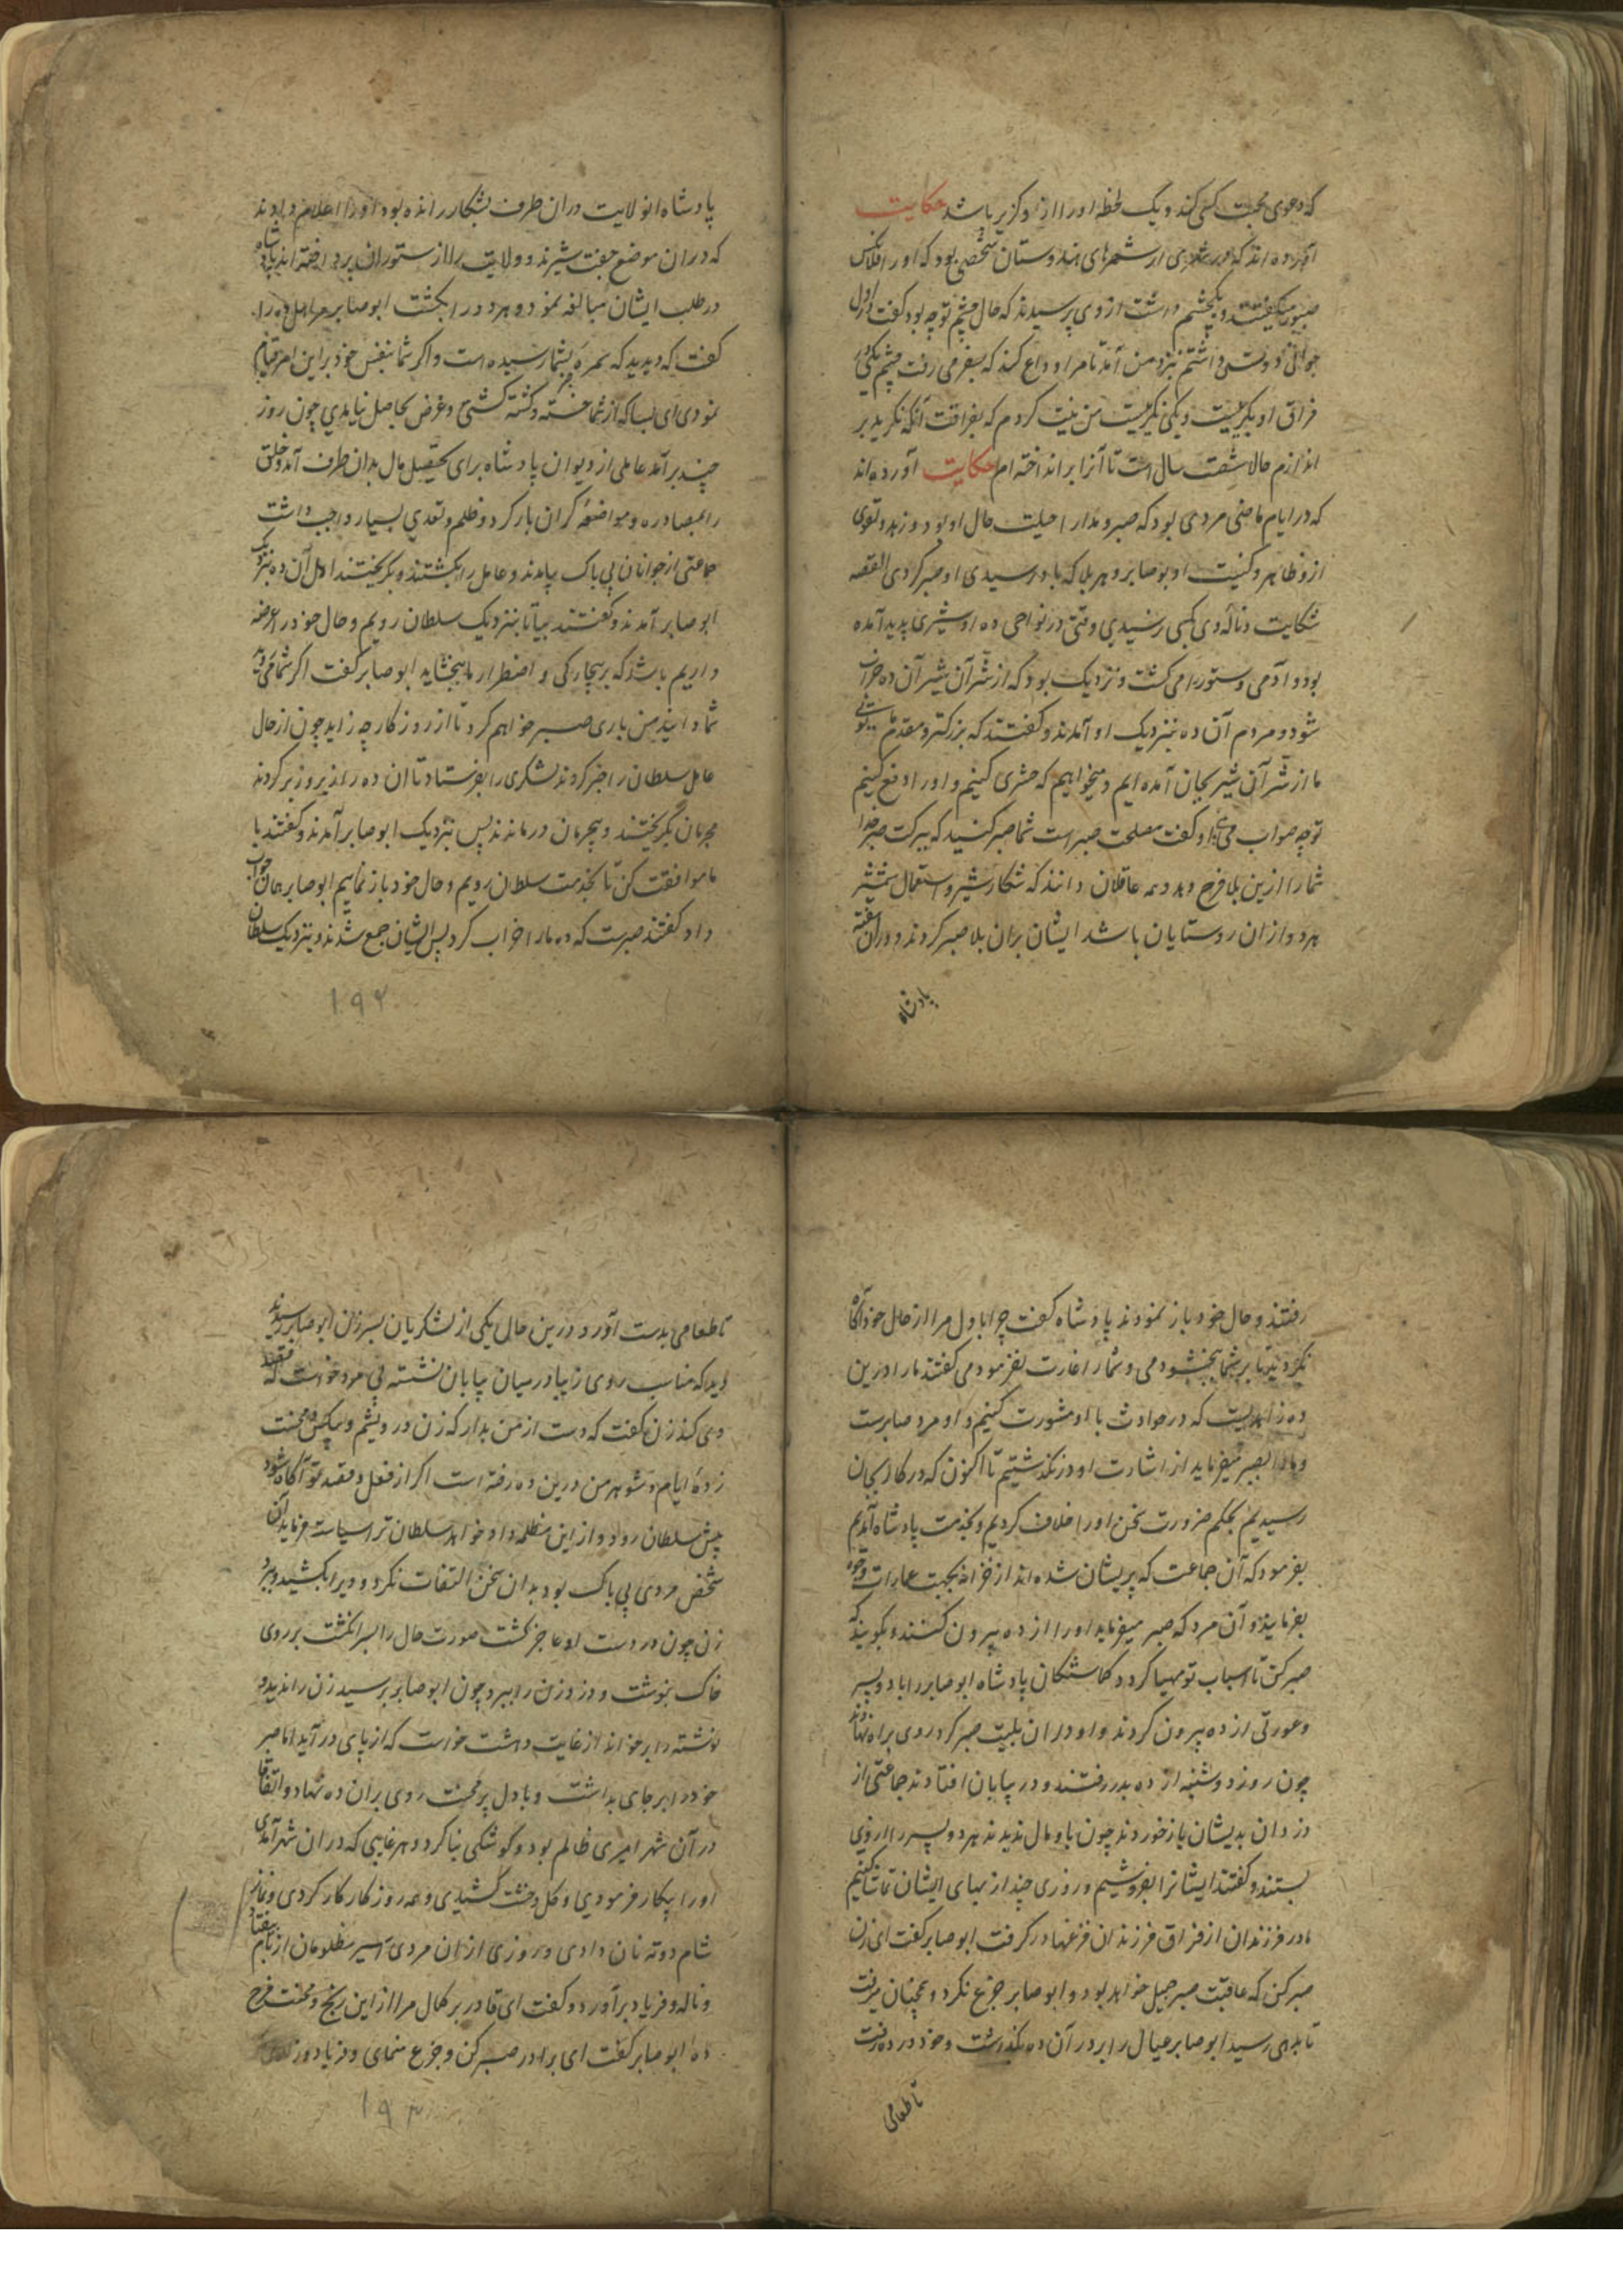 که دعوی محبت کسی کند و یک لحظه او را از و گزیر باشد حکایت
آورده اند که در شهری از شهرهای هندوستان شخصی بود که او را فلانکس
صبور میگفتند و یکچشم داشت از وی پرسیدند که حال چشم تو چه بود گفت در اول
جوانی دوستی داشتم نزد من آمد تا مرا وداع کند که بسفر می رفت چشم یکی در
فراق او بگریست و یکی نگریست من نیت کردم که بفراقت آنکه نگرید بر
اندازم حالا شصت سال است تا آنرا بر انداخته ام حکایت آورده اند
که در ایام ماضی مردی بود که صبر و مدارا حیلت حال او بود و زهد و تقوی
ازو ظاهر و کنیت او بوصابر و هر بلا که باو رسیدی او صبر کردی القصه
شکایت و نالهٔ وی بکسی نرسیدی وقتی در نواحی ده او شیری پدید آمده
بود و آدمی و ستور را می کشت و نزدیک بود که از شر آن شیر آن ده خراب
شود و مردم آن ده بنزدیک او آمدند و گفتند که بزرگتر و مقدم ما توئی
ما از شر آن شیر بجان آمده ایم و میخواهیم که حشری کنیم و او را دفع کنیم
تو چه صواب می بینی او گفت مصلحت صبر است شما صبر کنید که ببرکت صبر خدا
شما را ازین بلا فرج دهد و همه عاقلان دانند که شکار شیر و استعمال شمشیر
هر دو از ان روستایان باشد ایشان بران بلا صبر کردند و دران هفته
پادشاه
پادشاه انولایت دران طرف بشکار رانده بود او را اعلام دادند
که دران موضع جفت شیرند و ولایت را از ستوران پرداخته اند پادشاه
در طلب ایشان مبالغه نمود و هر دو را بکشت ابوصابر مر اهل ده را
گفت که دیدید که ثمره بشما رسیده است و اگر شما بنفس خود براین امر قیام
نمودی ای بسا که از شما خسته و کشته گشتی و غرض بحاصل نیامدی چون روز
چند برآمد عاملی از دیوان پادشاه برای تحصیل مال بدان طرف آمد و خلق
را بمصادره و مواضعه گران بار کرد و ظلم و تعدی بسیار واجب داشت
جماعتی از جوانان بی باک بیامدند و عامل را بکشتند و بگریختند اهل آن ده بنزدیک
ابوصابر آمدند و گفتند بیا تا بنزدیک سلطان رویم و حال خود را عرضه
داریم باشد که بر بیچارگی و اضطرار ما ببخشاید ابوصابر گفت اگر شما می روید
شما دانید من باری صبر خواهم کرد تا از روزگار چه زاید چون از حال
عامل سلطان را خبر کردند لشکری را بفرستاد تا ان ده را زیر و زبر کردند
مجرمان بگریختند و بیجرمان در ماندند پس بنزدیک ابوصابر آمدند و گفتند با
ما موافقت کن تا بخدمت سلطان رویم و حال خود باز نمائیم ابوصابر همان جواب
داد گفتند صبرست که ده ما را خراب کرد پس ایشان جمع شدند و بنزدیک سلطان
۱۹۲
رفتند و حال خود باز نمودند پادشاه گفت چرا باول مرا از حال خود آگاه
نکردید تا بر شما ببخشودمی و شما را غارت نفرمودمی گفتند ما را درین
ده زاهدیست که در حوادث با او مشورت کنیم و او مرد صابرست
و ما را بصبر میفرماید از اشارت او در نگذشتیم تا اکنون که در کار بجان
رسیدیم بحکم ضرورت سخن او را خلاف کردیم و بخدمت پادشاه آمدیم
بفرمود که آن جماعت که پریشان شده اند از خزانه بجهت عمارات وجوه
بفرمایند و آن مرد که صبر میفرماید او را از ده بیرون کنند و بگویند که
صبر کن تا اسباب تو مهیا گردد گماشتگان پادشاه ابوصابر را با دو پسر
و عورتی از ده بیرون کردند و او دران بلیت صبر کرد و روی براه نهادند
چون روز دوشنبه از ده بدر رفتند و در بیابان افتادند جماعتی از
دزدان بدیشان باز خوردند چون با او مال ندیدند هر دو پسر را از وی
بستند و گفتند ایشانرا بفروشیم و روزی چند از بهای ایشان تماشا کنیم
مادر فرزندان از فراق فرزندان فزغها در گرفت ابوصابر گفت ای زن
صبر کن که عاقبت صبر جمیل خواهد بود و ابوصابر جزع نکرد و همچنان میرفت
تا بدهی رسید ابوصابر عیال را بر در آن ده بگذاشت و خود در ده رفت
تا طعامی
تا طعامی بدست آورد درین حال یکی از لشکریان بسر زن ابوصابر رسید
دید که مناسب روی زیبا در میان بیابان نشسته بی مرد خواست که قصد
وی کند زن گفت که دست از من بدار که زن درویشم و بیکس و محنت
زدهٔ ایام و شوهر من درین ده رفته است اگر از فعل و قصد تو آگاه شود
پیش سلطان رود و از این مظلمه داد خواهد سلطان ترا سیاست فرماید آن
شخص مردی بی باک بود بدان سخن التفات نکرد و ویرا بکشید و ببرد
زن چون در دست او عاجز گشت صورت حال را بسر انگشت بر روی
خاک بنوشت و دزد زن را ببرد چون ابوصابر برسید زن را ندید و
نوشته را بر خواند از غایت دهشت خواست که از پای در آید اما صبر
خود را بر جای بداشت و با دل پر محنت روی بران ده نهاد و اتفاقا
در آن شهر امیری ظالم بود و کوشکی بنا کرد و هر غایبی که دران شهر آمدی
او را بیکار فرمودی و گل و خشت کشیدی و همه روز کار کار کردی و نماز
شام دو ته نان دادی و روزی از ان مردی اسیر مظلومان از بام بیفتاد
و ناله و فریاد برآورد و گفت ای قادر بر کمال مرا از این رنج و محنت فرح
ده ابوصابر گفت ای برادر صبر کن و جزع منمای و فریاد و ز
۱۹۳